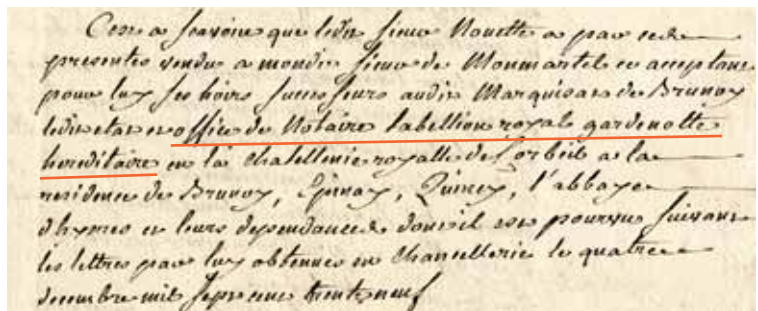 C'est a scavoir que ledit sieur Nouette a par ces
presentes vendu a mondit sieur de Monmartel ce acceptant
pour luy ses hoirs successeurs audit Marquisat de Brunoy
ledit etat et office de Notaire tabellion royal gardenotte
hereditaire en la Chatellenie royalle de Corbeil a la
residence de Brunoy, Epinay, Quincy, l'abbaye
d'hyerres et leurs dependances dont il est pourvu suivant
les lettres par luy obtenues en Chancellerie le quatre
decembre mil sept cent trente neuf